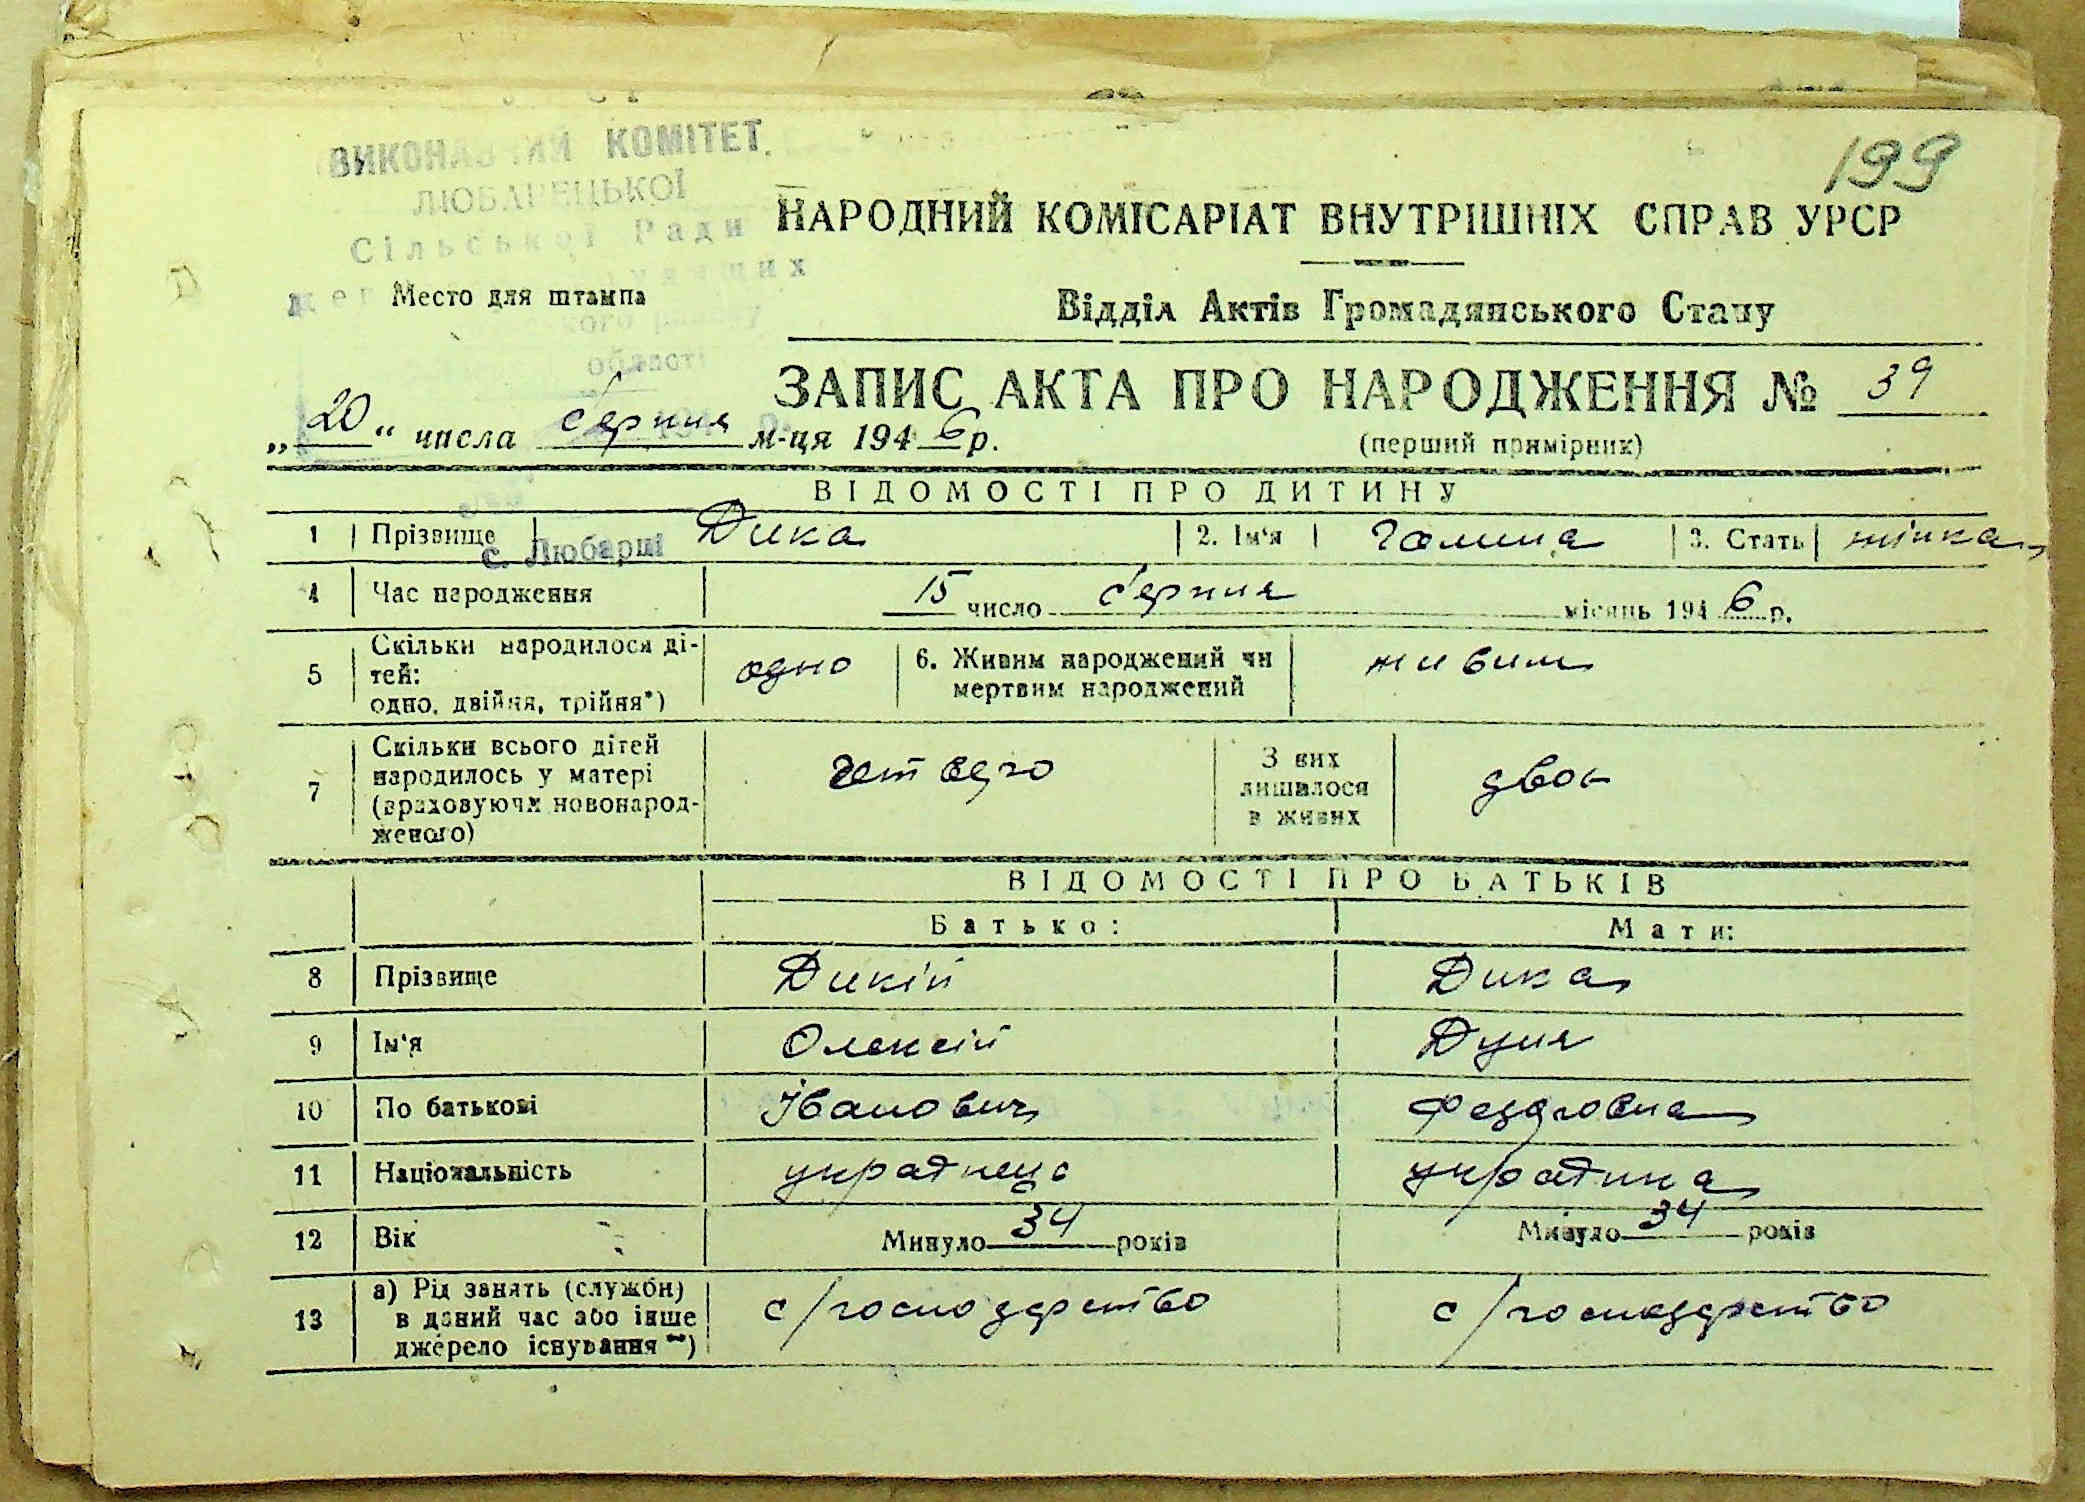 199
ВИКОНАВЧИЙ КОМІТЕТ
ЛЮБАРЕЦЬКОЇ
Сільської Ради
области
с. Любарці
НАРОДНИЙ КОМІСАРІАТ ВНУТРІШНІХ СПРАВ УРСР
Место для штампа
Відділ Актів Громадянського Стану
ЗАПИС АКТА ПРО НАРОДЖЕННЯ № 39
„20“ числа серпня м-ця 1946 р.
(перший примірник)
ВІДОМОСТІ ПРО ДИТИНУ
1 Прізвище Дика 2. Ім'я Галина 3. Стать жінка
4 Час народження 15 число серпня місяць 1946 р.
5 Скільки народилося ді-
тей:
одно, двійня, трійня*) одно 6. Живим народжений чи
мертвим народжений живим
7 Скільки всього дітей
народилось у матері
(враховуючи новонарод-
женого) четверо З них
лишилося
в живих двоє
ВІДОМОСТІ ПРО БАТЬКІВ
Батько: Мати:
8 Прізвище Дикій Дика
9 Ім'я Олексій Дуня
10 По батькові Іванович Федоровна
11 Національність украінець украінка
12 Вік Минуло 34 років Минуло 34 років
13 а) Рід занять (служби)
в даний час або інше
джерело існування **) с/господарство с/господарство